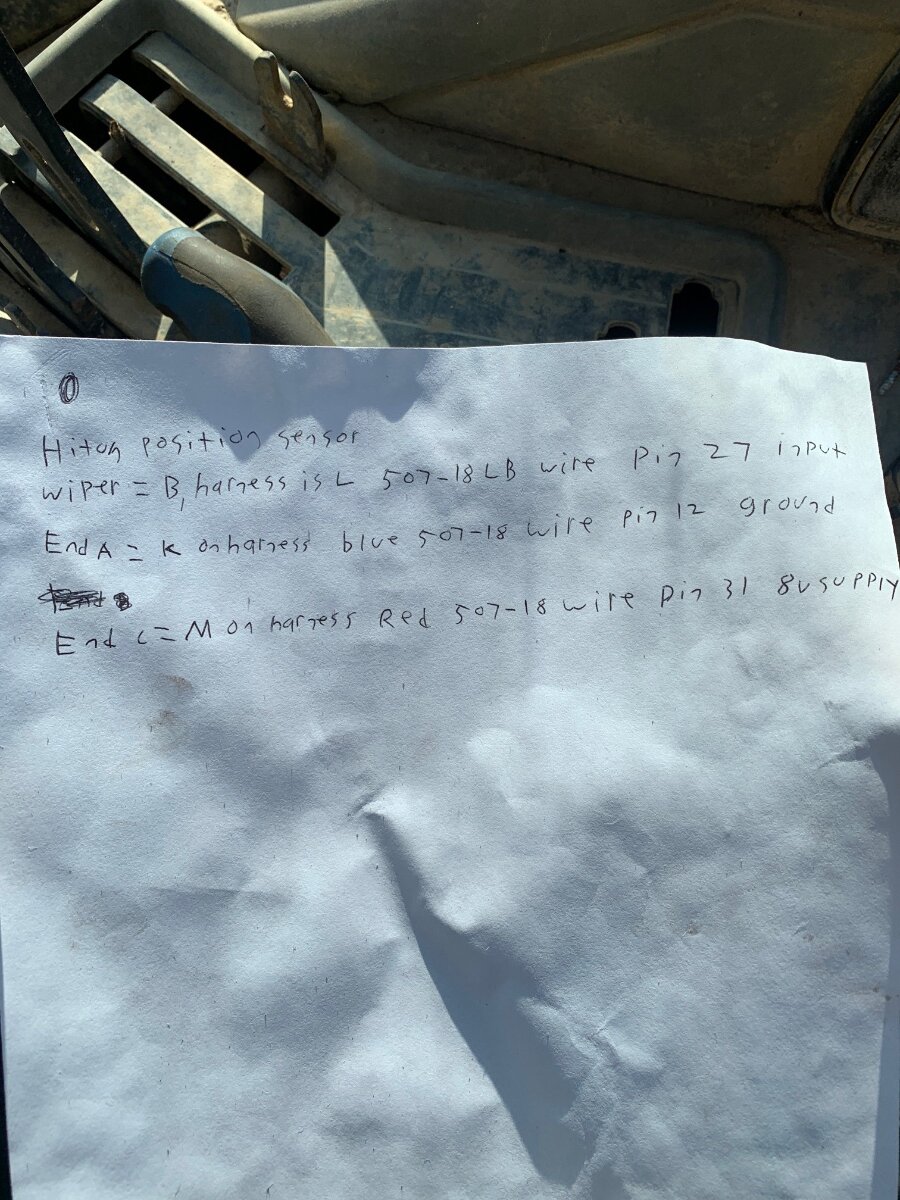 0
Hitch position sensor
wiper = B, harness is L 507-18 LB wire Pin 27 input
End A = K on harness blue 507-18 wire pin 12 ground
End C = M on harness Red 507-18 wire pin 31 8v supply